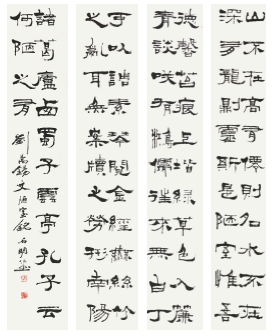 山不在高有僊則名水不在
深有龍則靈斯是陋室惟吾
德馨苔痕上階綠草色入簾
青談笑有鴻儒往來無白丁
可以調素琴閱金經無絲竹
之亂耳無案牘之勞形南陽
諸葛廬西蜀子雲亭孔子云
何陋之有 劉禹錫文陋室銘